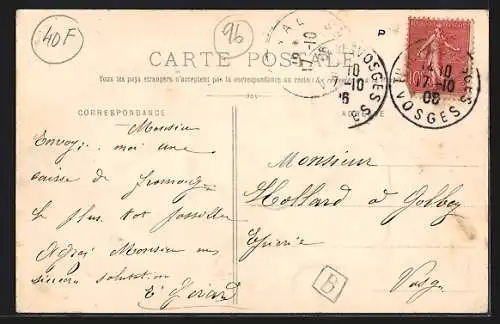 40F
96
CARTE POSTALE
Tous les pays étrangers n'acceptent pas la correspondance au recto
CORRESPONDANCE
ADRESSE
P
VOSGES
10
17-10
06
VOSGES
10
Monsieur
Envoyez moi une
caisse de fromage
le plus tot possible
Monsieur mes
sincères salutation
Monsieur
Hollard à Golbey
Epicerie
Vosges
B